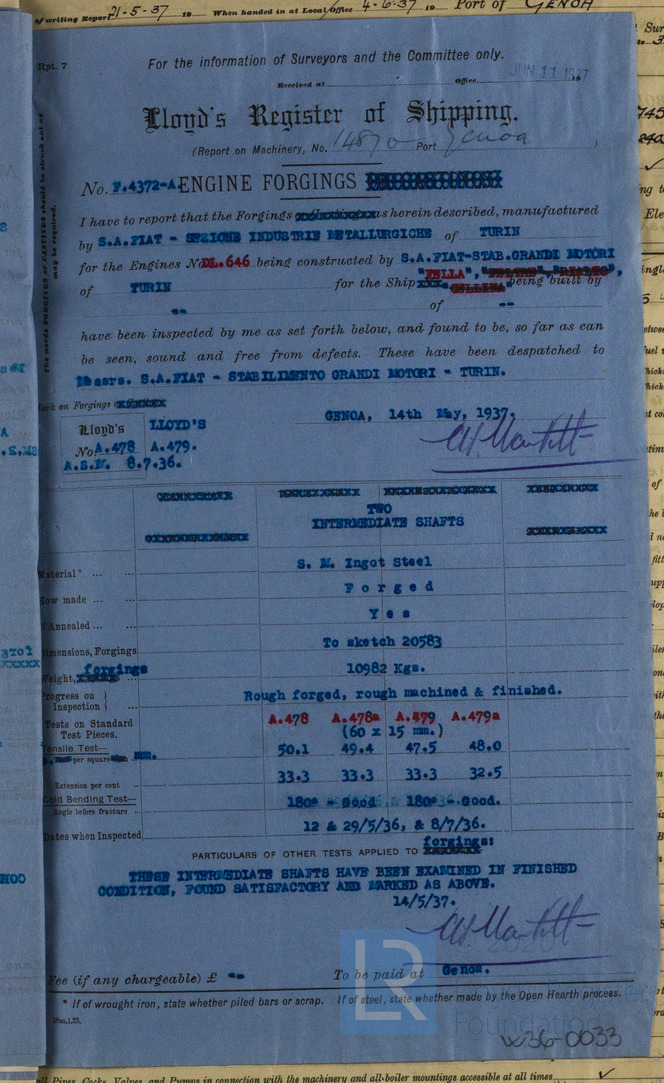 of writing Report 21-5-37 19 When handed in at Local Office 4-6-37 19 Port of GENOA
Rpt. 7
For the information of Surveyors and the Committee only.
Received at Office JUN 11 1937
Lloyd's Register of Shipping.
(Report on Machinery, No. 14870 Port Genoa )
No. F.4372-A. ENGINE FORGINGS
The words FORGINGS or CASTINGS should be struck out as may be required.
I have to report that the Forgings as herein described, manufactured
by S.A.FIAT - SEZIONE INDUSTRIE METALLURGICHE of TURIN
for the Engines No. DL.646 being constructed by S.A.FIAT-STAB.GRANDI MOTORI
"FELLA",
of TURIN for the Ship being built by
-- of --
have been inspected by me as set forth below, and found to be, so far as can
be seen, sound and free from defects. These have been despatched to
Messrs. S.A.FIAT - STABILIMENTO GRANDI MOTORI - TURIN.
Mark on Forgings
GENOA, 14th May, 1937.
Lloyd's LLOYD'S
No A.478 A.479.
A.S.M. 8.7.36.
TWO
INTERMEDIATE SHAFTS
Material* ... ... S. M. Ingot Steel
How made ... ... Forged
If Annealed ... ... Yes
Dimensions, Forgings To sketch 20583
Weight, forgings ... 10982 Kgs.
Progress on Inspection } ... Rough forged, rough machined & finished.
Tests on Standard Test Pieces. A.478 A.478a A.479 A.479a
(60 x 15 mm.)
Tensile Test— 50.1 49.4 47.5 48.0
per square mm.
Extension per cent 33.3 33.3 33.3 32.5
Cold Bending Test— 180° - Good 180° - Good.
Angle before fracture
Dates when Inspected 12 & 29/5/36, & 8/7/36.
PARTICULARS OF OTHER TESTS APPLIED TO forgings:
THESE INTERMEDIATE SHAFTS HAVE BEEN EXAMINED IN FINISHED
CONDITION, FOUND SATISFACTORY AND MARKED AS ABOVE.
14/5/37.
Fee (if any chargeable) £ -- To be paid at Genoa.
* If of wrought iron, state whether piled bars or scrap. If of steel, state whether made by the Open Hearth process.
LR
Foundation
W36-0033
all Pipes, Cocks, Valves, and Pumps in connection with the machinery and all boiler mountings accessible at all times